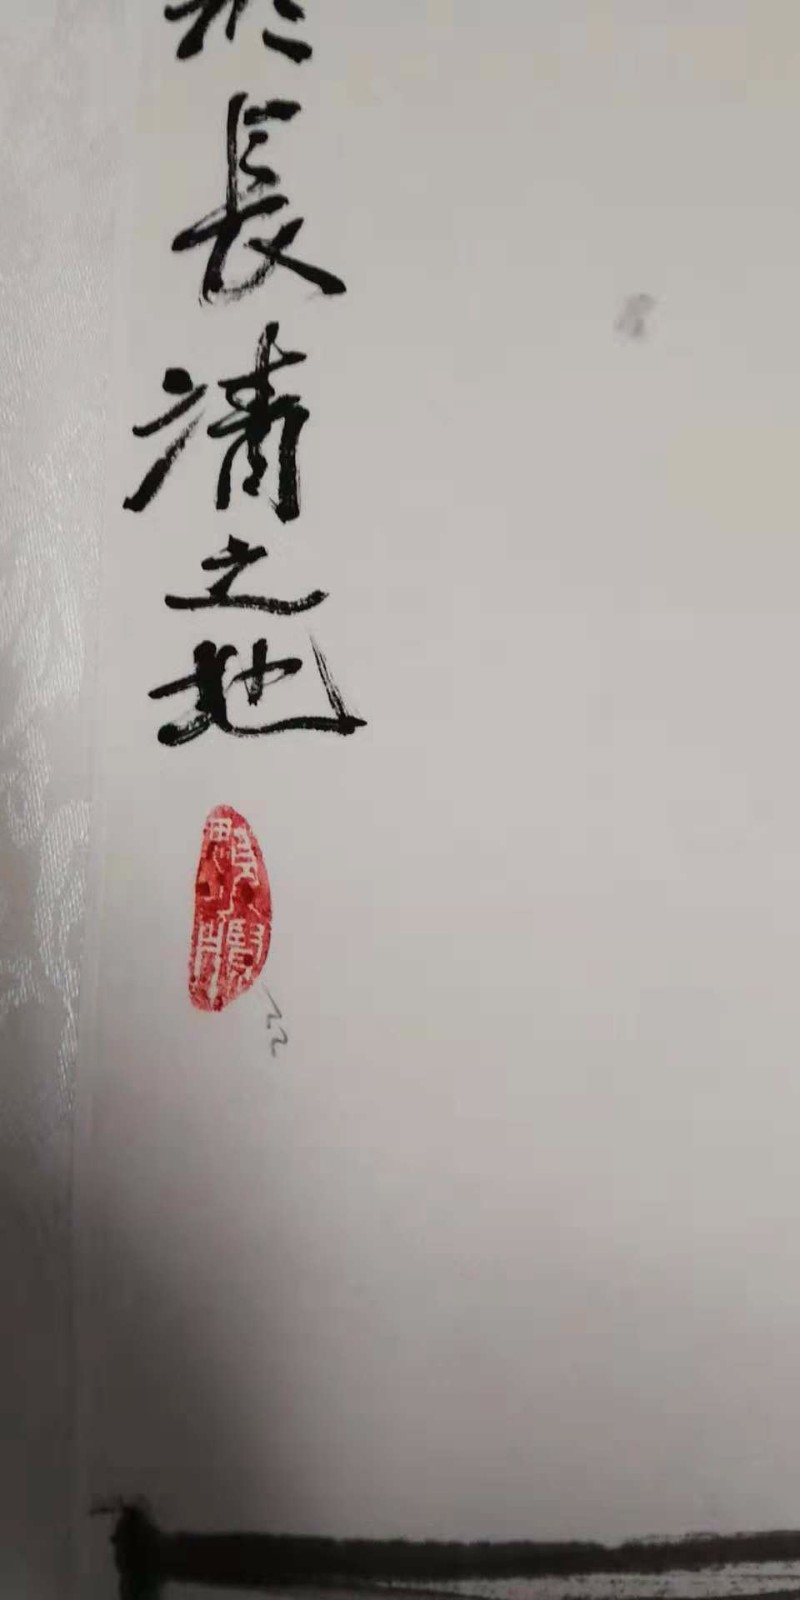 於長清之地